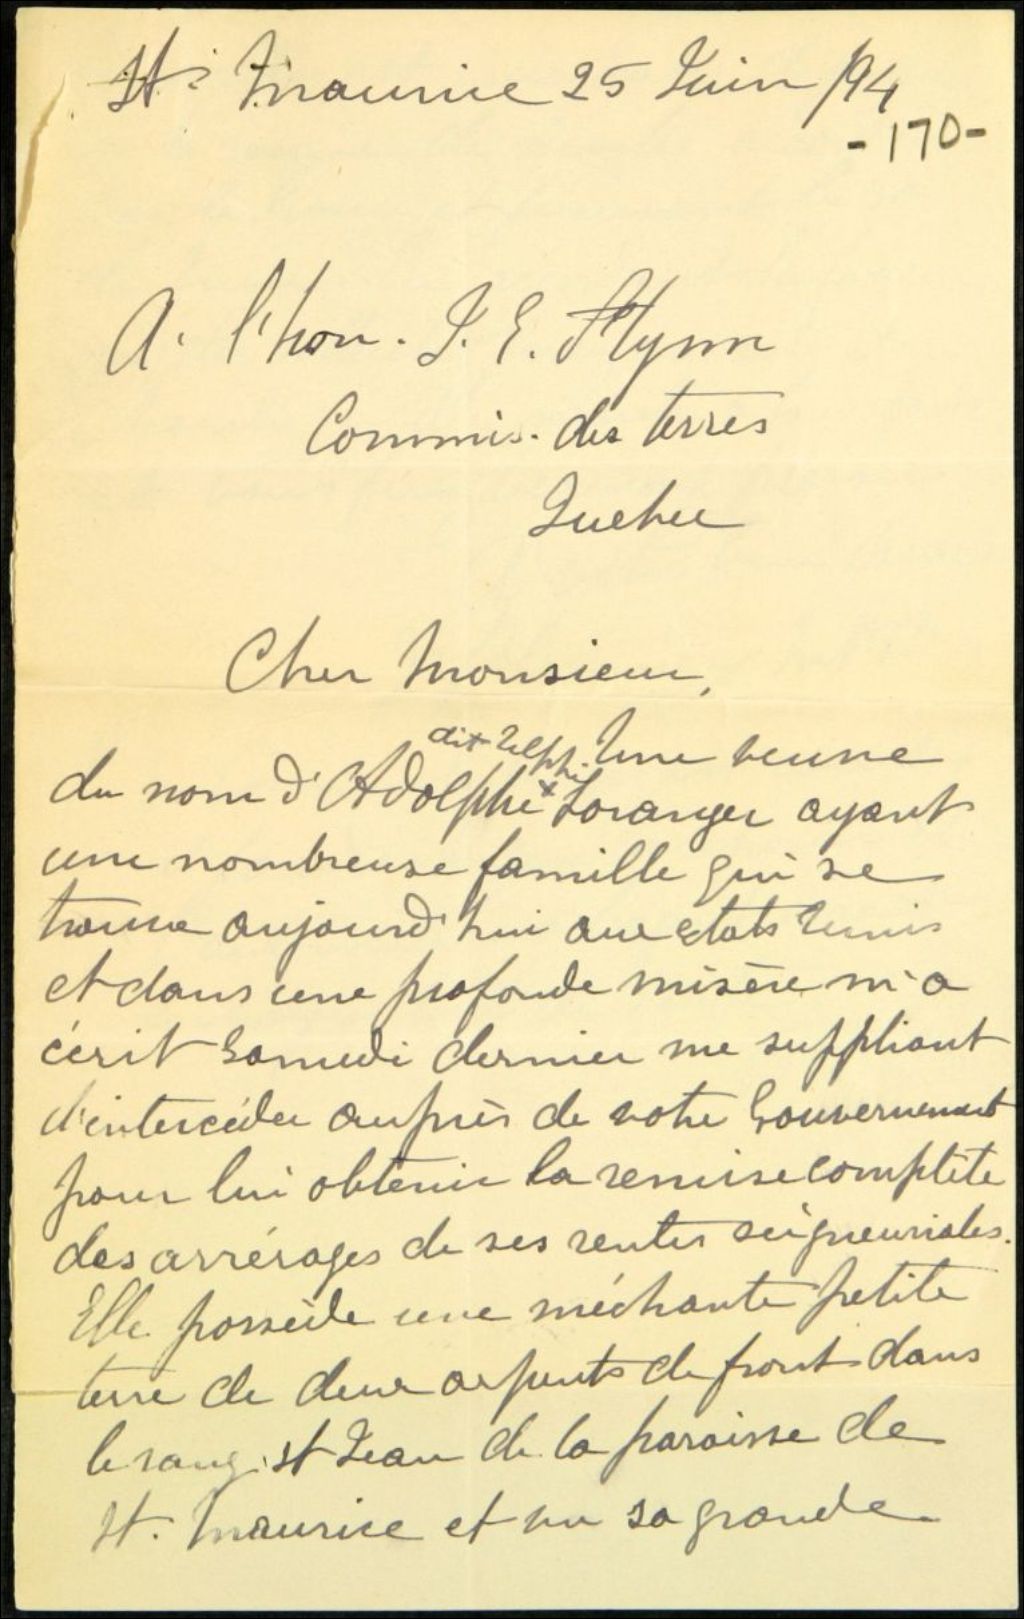 St. Maurice 25 Juin /94
-170-
A. l'hon. J. E. Flynn
Commis. des terres
Quebec
Cher Monsieur,
dit Ulph. Une veuve
du nom d'Adolphe x Loranger ayant
une nombreuse famille qui se
trouve aujourd'hui aux etats Unis
et dans une profonde misère m'a
écrit Samedi dernier me suppliant
d'intercéder auprès de votre Gouvernement
pour lui obtenir la remise complète
des arrérages de ses rentes seigneuriales.
Elle possède une méchante petite
terre de deux arpents de front dans
le rang St Jean de la paroisse de
St. Maurice et vu sa grande